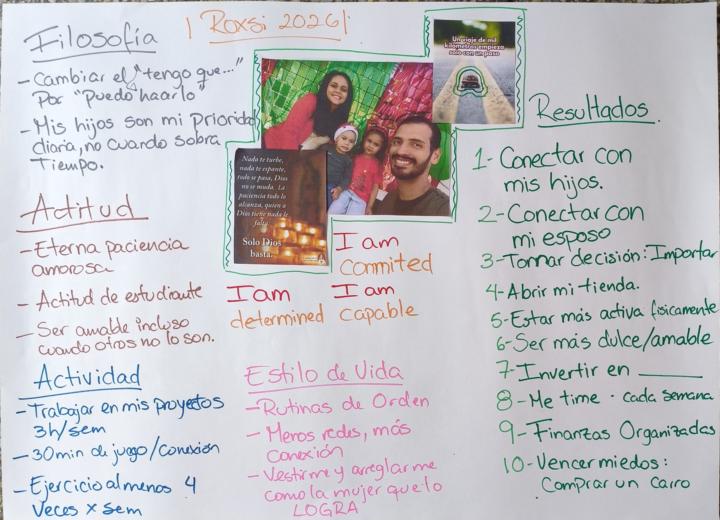 Filosofía
| Roxsi 2026 |
- Cambiar el "tengo que..."
Por "Puedo hacerlo"
- Mis hijos son mi prioridad
diaria, no cuando sobra
Tiempo.
Un viaje de mil
kilómetros empieza
solo con un paso
Nada te turbe,
nada te espante,
todo se pasa, Dios
no se muda. La
paciencia todo lo
alcanza, quien a
Dios tiene nada le
falta.
Solo Dios
basta.
Actitud
- Eterna paciencia
amorosa
- Actitud de estudiante
- Ser amable incluso
cuando otros no lo son.
I am
commited
I am
determined
I am
capable
Actividad
- Trabajar en mis proyectos
3h/sem
- 30 min de juego/conexión
- Ejercicio al menos 4
veces x sem
Estilo de Vida
- Rutinas de Orden
- Menos redes, más
conexión
- Vestirme y arreglarme
como la mujer que lo
LOGRA
Resultados
1- Conectar con
mis hijos.
2- Conectar con
mi esposo
3- Tomar decisión: Importar
4- Abrir mi tienda.
5- Estar más activa físicamente
6- Ser más dulce/amable
7- Invertir en ______
8- Me time · cada semana
9- Finanzas Organizadas
10- Vencer miedos:
Comprar un carro